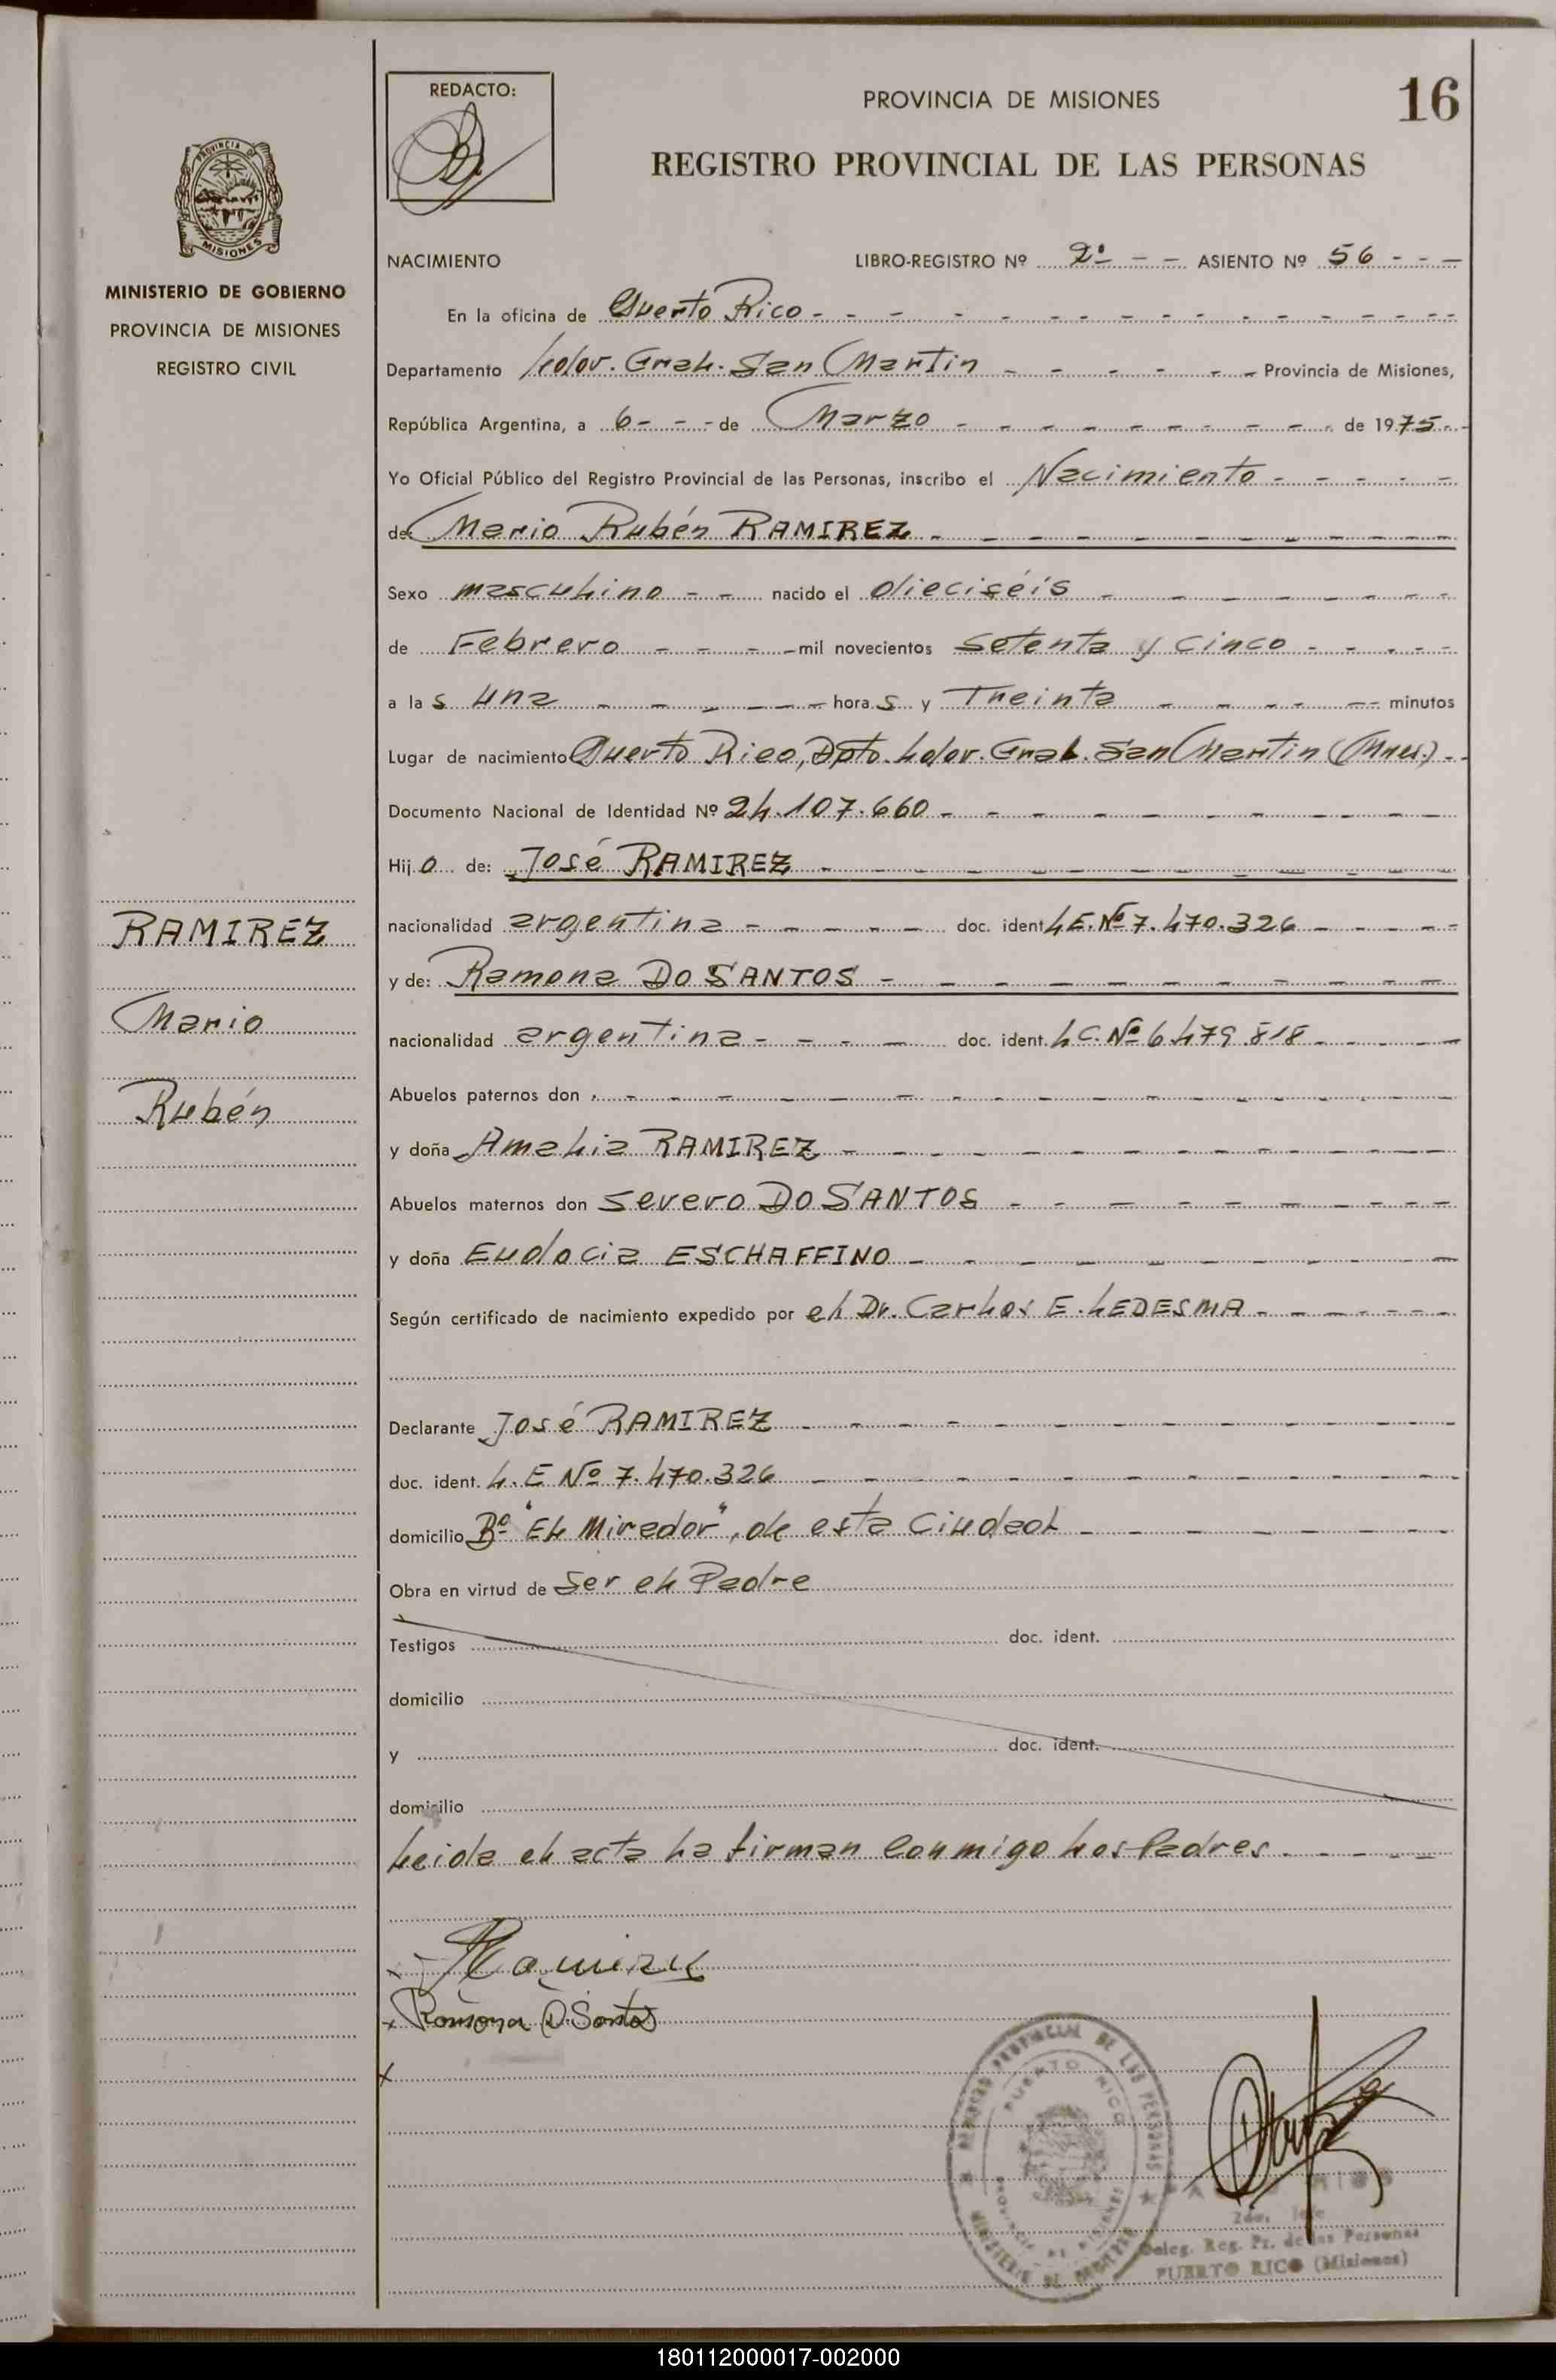 16
REDACTO:
PROVINCIA DE MISIONES
REGISTRO PROVINCIAL DE LAS PERSONAS
PROVINCIA DE
MISIONES
MINISTERIO DE GOBIERNO
PROVINCIA DE MISIONES
REGISTRO CIVIL
NACIMIENTO LIBRO-REGISTRO Nº 2º - - ASIENTO Nº 56 - - -
En la oficina de Puerto Rico
Departamento Ldor. Gral. San Martin Provincia de Misiones,
República Argentina, a 6 - - - de Marzo de 1975
Yo Oficial Público del Registro Provincial de las Personas, inscribo el Nacimiento
de: Mario Rubén RAMIREZ
Sexo masculino - - nacido el dieciséis
de Febrero - - - mil novecientos setenta y cinco
a las una horas y Treinta minutos
Lugar de nacimiento Puerto Rico, Dpto. Ldor. Gral. San Martin (Mnes).
Documento Nacional de Identidad Nº 24.107.660
Hijo de: José RAMIREZ
RAMIREZ
nacionalidad argentina doc. ident L.E. Nº 7.470.326
y de: Ramona DO SANTOS
Mario
nacionalidad argentina doc. ident. L.C. Nº 6.479.818
Abuelos paternos don
Rubén
y doña Amalia RAMIREZ
Abuelos maternos don Severo DO SANTOS
y doña Eudocia ESCHAFFINO
Según certificado de nacimiento expedido por el Dr. Carlos E. LEDESMA
Declarante José RAMIREZ
doc. ident. L.E Nº 7.470.326
domicilio Bº "El Mirador", de esta Ciudad
Obra en virtud de Ser el Padre
Testigos doc. ident.
domicilio
y doc. ident.
domicilio
Leida el acta la firman conmigo los Padres
Ramirez
Ramona D. Santos
REGISTRO PROVINCIAL DE LAS PERSONAS
PUERTO RICO
PROVINCIA DE MISIONES
MINISTERIO DE GOBIERNO
2do. Jefe
Deleg. Reg. Pr. de las Personas
PUERTO RICO (Misiones)
180112000017-002000